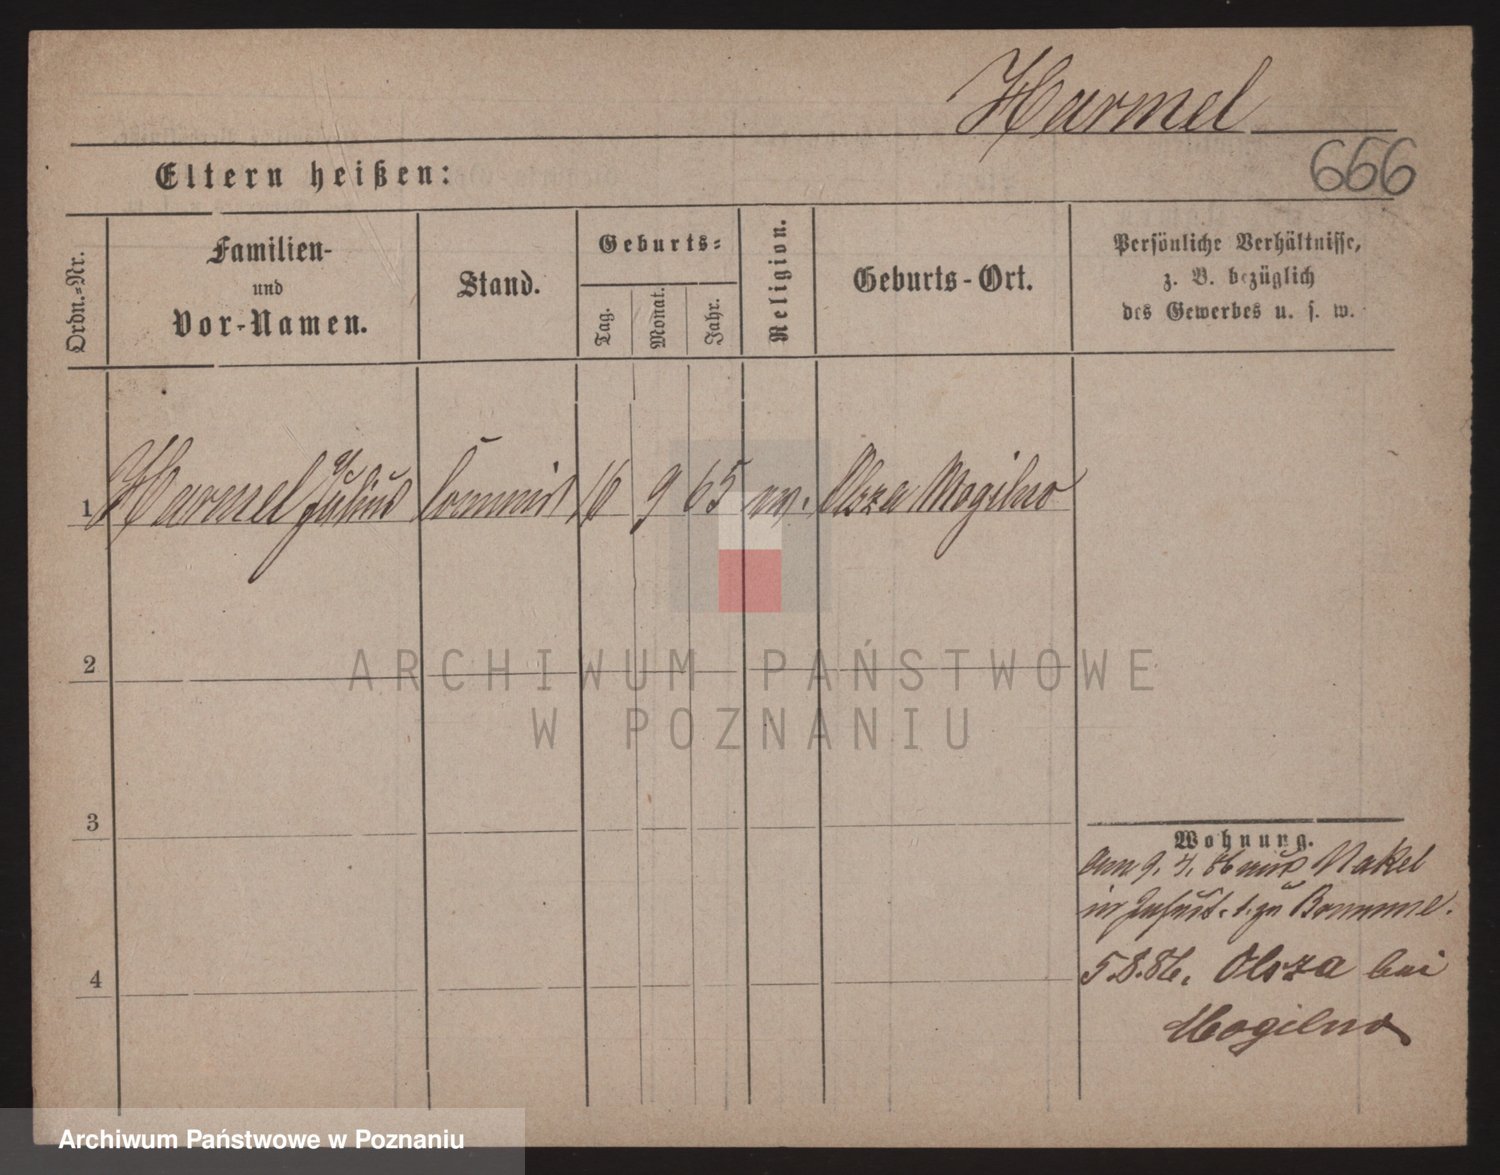 Harmel
666
Eltern heißen:
Ordn.-Nr.
Familien-
und
Vor-Namen.
Stand.
Geburts-
Tag.
Monat.
Jahr.
Religion.
Geburts-Ort.
Persönliche Verhältnisse,
z. B. bezüglich
des Gewerbes u. s. w.
1 Harmel Julius Commis 16 9 65 ev. Olsza Mogilno
2
3
4
Wohnung.
am 9. 7. 86 aus Nakel
5.8.86. Olsza bei
Mogilno
ARCHIWUM PAŃSTWOWE
W POZNANIU
Archiwum Państwowe w Poznaniu